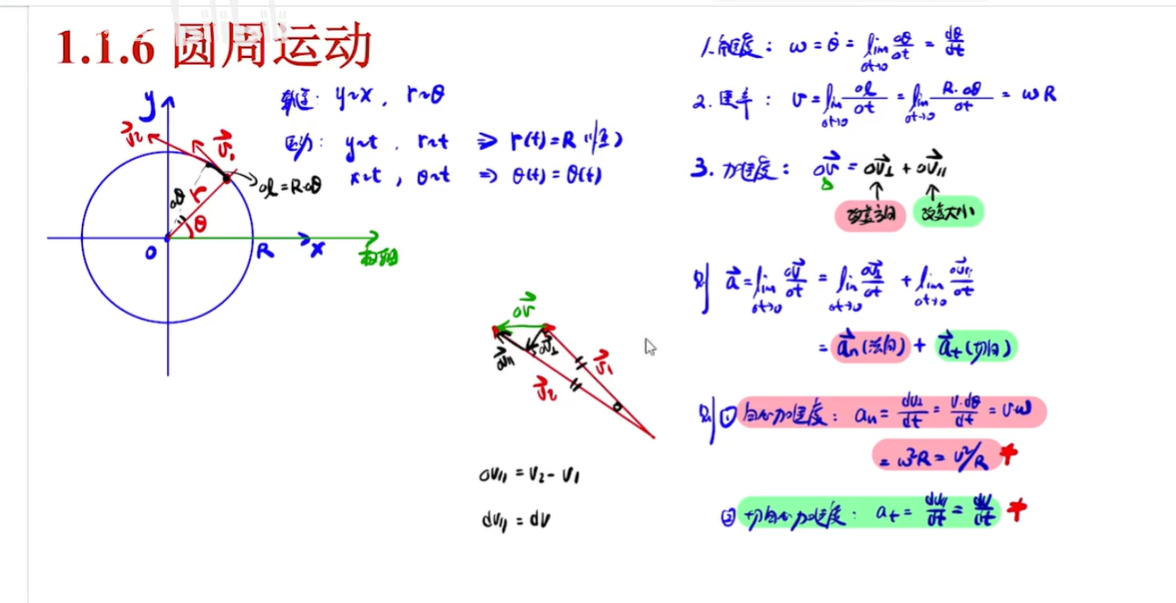 1.1.6 圆周运动
轨迹: y~x, r~θ
运动: y~t, r~t ⇒ r(t)=R
x~t, θ~t ⇒ θ(t)=θ(t)
y
v⃗₂
v⃗₁
Δθ
r
Δl=R·Δθ
θ
O
R
x
极轴
Δv⃗
Δv⃗⊥
Δv⃗∥
v⃗₁
v⃗₂
Δv∥ = v₂ - v₁
dv∥ = dv
1. 角速度: ω = θ̇ = lim Δt→0 Δθ/Δt = dθ/dt
2. 速率: v = lim Δt→0 Δl/Δt = lim Δt→0 R·Δθ/Δt = ωR
3. 加速度: Δv⃗ = Δv⃗⊥ + Δv⃗∥
改变方向 改变大小
则 a⃗ = lim Δt→0 Δv⃗/Δt = lim Δt→0 Δv⃗⊥/Δt + lim Δt→0 Δv⃗∥/Δt
= a⃗n(法向) + a⃗t(切向)
则① 向心加速度: an = dv⊥/dt = v·dθ/dt = vω
= ω²R = v²/R
② 切向加速度: at = dv∥/dt = dv/dt